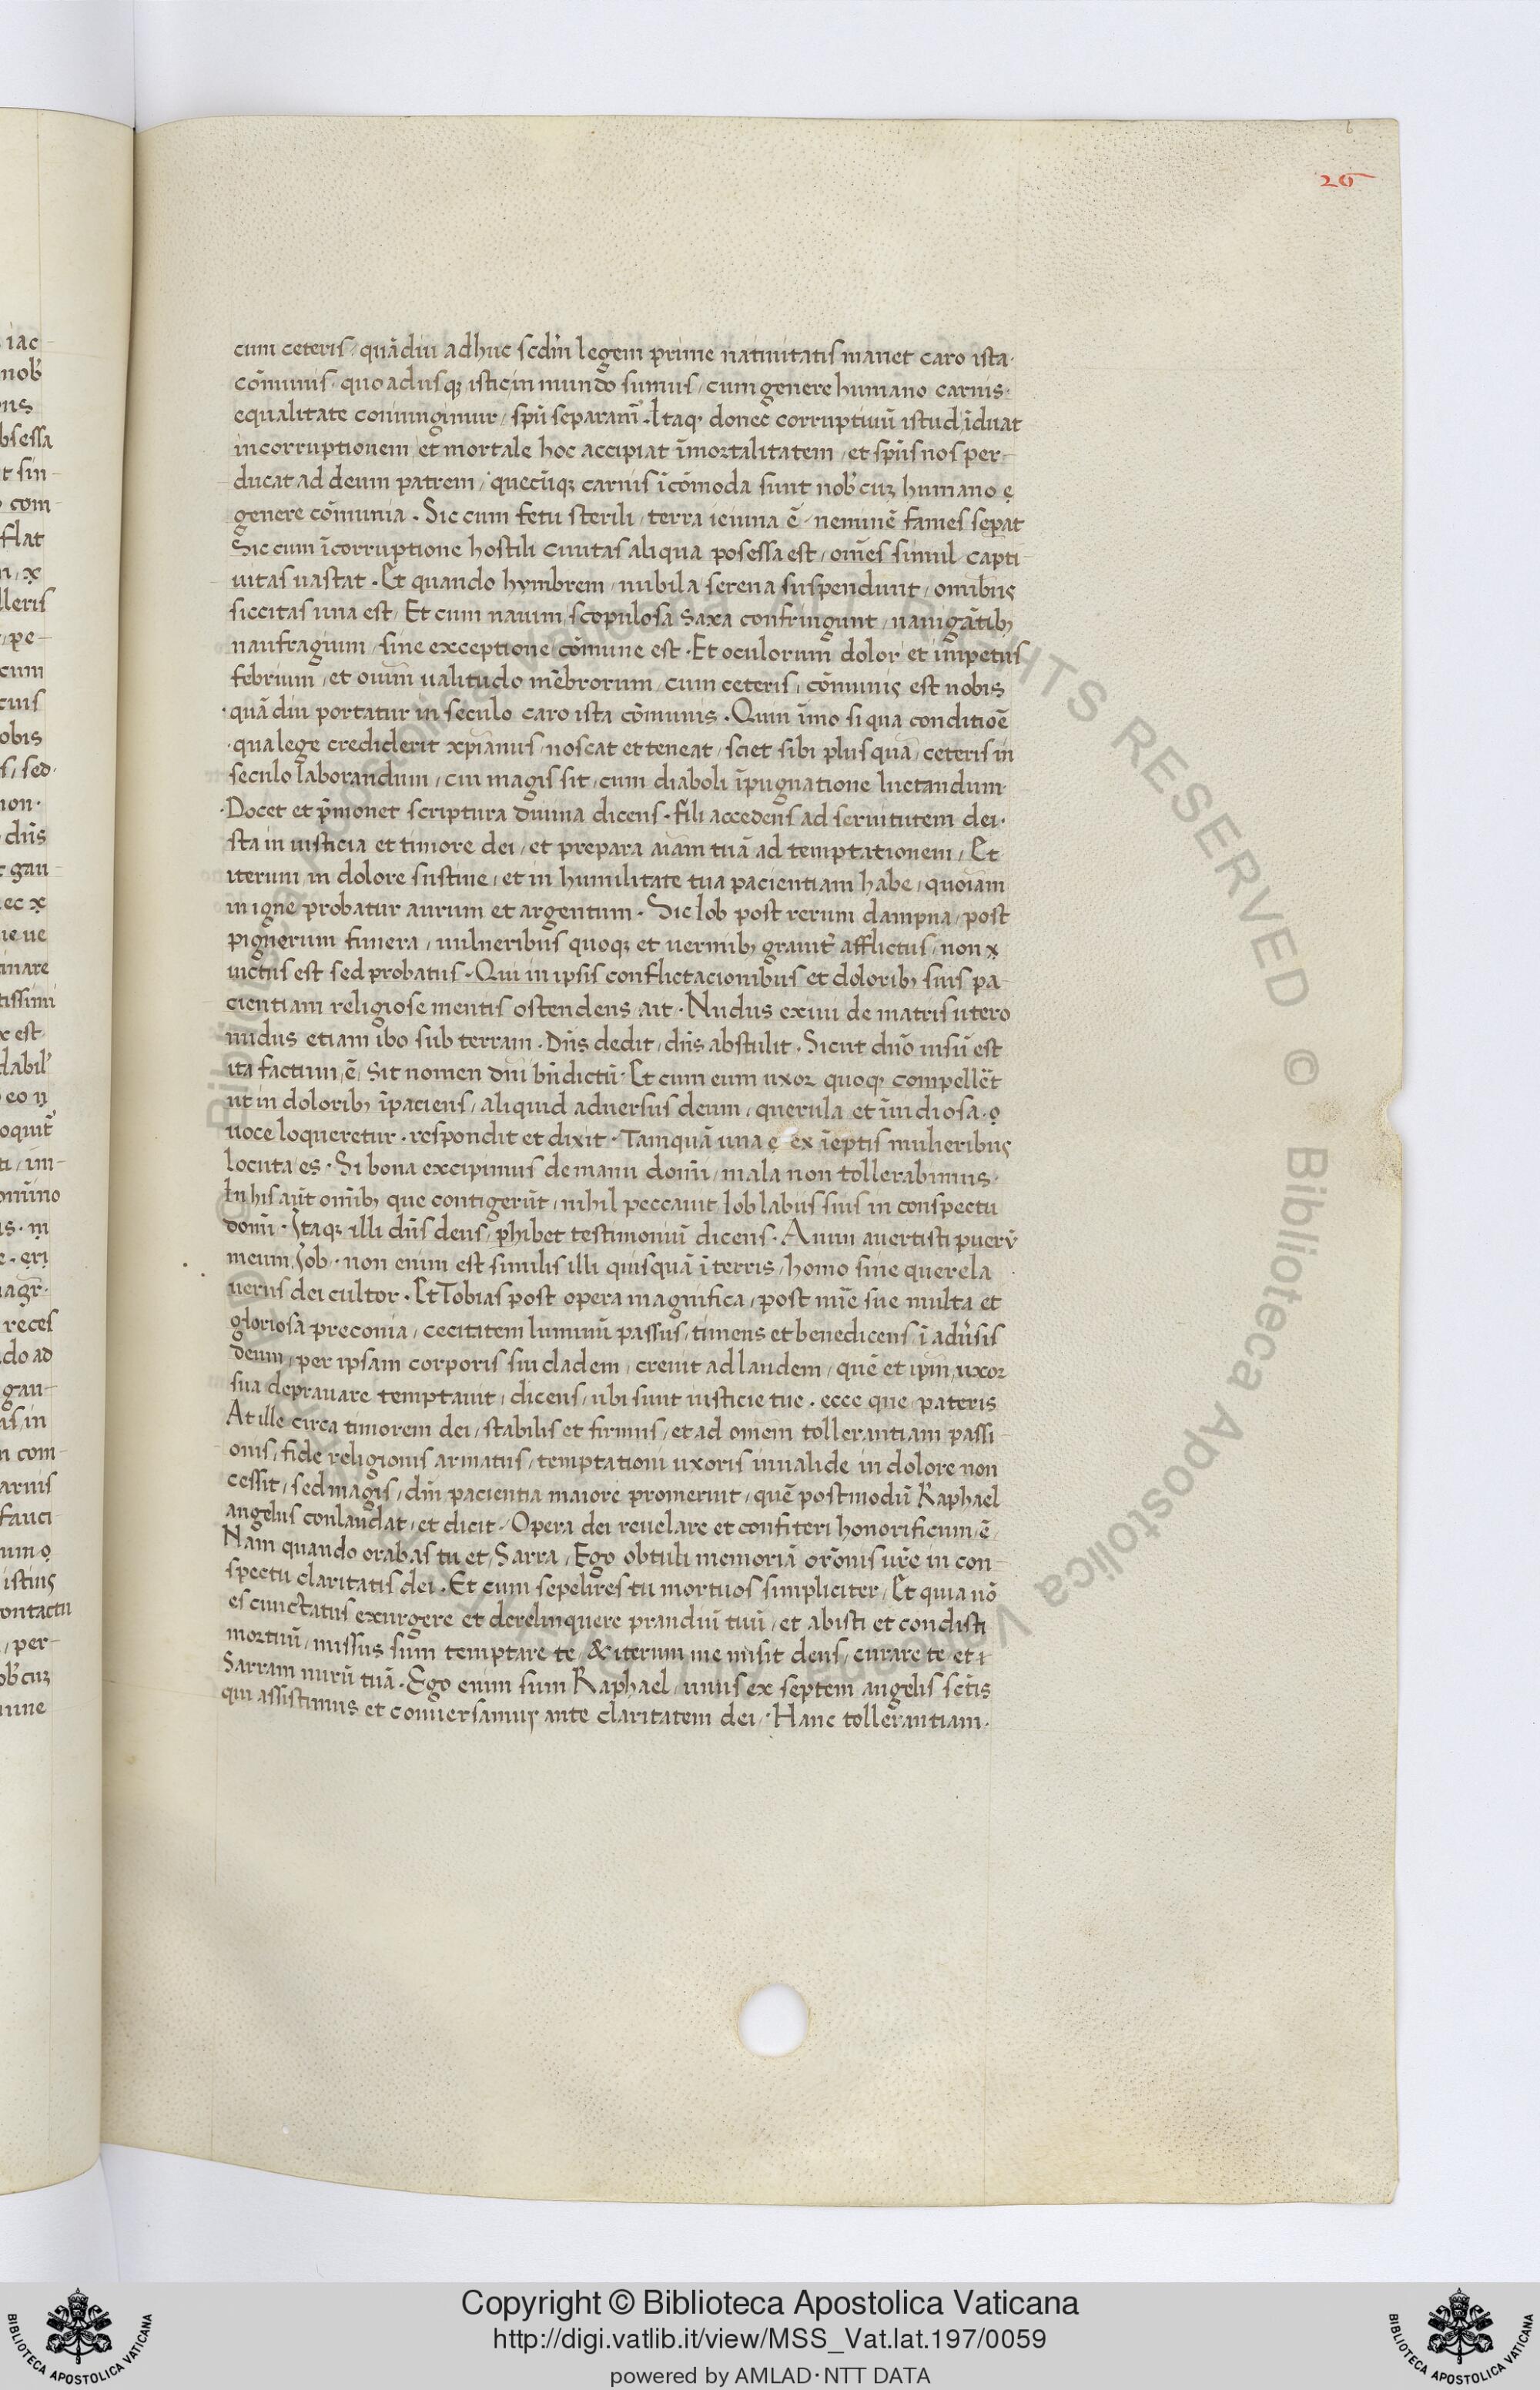 26
cum ceteris / quādiu adhuc scdm̄ legem prime natiuitatis manet caro ista·
cōmunis· quo adusqꝫ istic in mundo sumus / cum genere humano carnis·
equalitate coniungimur / spū separam̄ . Itaqꝫ donec corruptiuū istud īduat
incorruptionem et mortale hoc accipiat īmortalitatem / et spūs nos per-
ducat ad deum patrem / quecūqꝫ carnis īcōmoda sunt nob' cuꝫ humano
genere cōmunia . Sic cum fetu sterili / terra ieiuna ē / neminē fames sepat
Sic cum īcorruptione hostili ciuitas aliqua posessa est / om̄es simul capti-
uitas uastat . Et quando hymbrem / nubila serena suspendunt / omibus
siccitas una est / Et cum nauim scopulosa saxa confringunt / nauigātibꝫ
naufragium / sine exceptione cōmune est . Et oculorum dolor et impetus
febrium / et ouim ualitudo mēbrorum / cum ceteris / cōmunis est nobis
quādiu portatur in seculo caro ista cōmunis . Quin īmo si qua conditioē
qua lege crediderit xpianus / noscat et teneat / sciet sibi plus quā ceteris in
seculo laborandum / cui magis sit / cum diaboli īpugnatione luctandum·
Docet et p̄monet scriptura diuina dicens . fili accedens ad seruitutem dei·
sta in iusticia et timore dei / et prepara aiam tuā ad temptationem / Et
iterum in dolore sustine / et in humilitate tua pacientiam habe / quoiam
in igne probatur aurum et argentum . Sic Iob post rerum dampna / post
pignerum funera / uulneribus quoqꝫ et uermibꝫ grauit' afflictus / non
uictus est sed probatus . Qui in ipsis conflictacionibus et doloribꝫ suis pa-
cientiam religiose mentis ostendens ait . Nudus exiui de matris utero
nudus etiam ibo sub terram . Dn̄s dedit / dn̄s abstulit . Sicut dn̄o uisū est
ita factum ē / Sit nomen dn̄i bn̄dictū . Et cum eum uxor quoqꝫ compellēt
ut in doloribꝫ īpaciens / aliquid aduersus deum / querula et īuidiosa
uoce loqueretur . respondit et dixit . Tamquā una ex īeptis mulieribus
locuta es . Si bona excipimus de manu domī / mala non tollerabimus·
In his aūt om̄ibꝫ que contigerūt / nihil peccauit Iob labus suis in conspectu
domī . Itaqꝫ illi dn̄s deus / phibet testimoniū dicens . Anim auertisti puerū
meum Iob . non enim est similis illi quisquā ī terris / homo sine querela
uerus dei cultor . Et Tobias post opera magnifica / post mīe sue multa et
gloriosa preconia / cecititem luminū passus / timens et benedicens ī adūsis
deum / per ipsam corporis sui cladem / creuit ad laudem / quē et ipm̄ uxor
sua deprauare temptauit / dicens / ubi sunt iusticie tue . ecce que pateris
At ille circa timorem dei / stabilis et firmus / et ad omem tollerantiam passi-
onis / fide religionis armatus / temptationi uxoris inualide in dolore non
cessit / sed magis / dm̄ pacientia maiore promeruit / quē postmodū Raphael
angelus conlaudat / et dicit / Opera dei reuelare et confiteri honorificum ē
Nam quando orabas tu et Sarra / Ego obtuli memoriā orōnis ur̄e in con-
spectu claritatis dei . Et cum sepelires tu mortuos simpliciter / Et quia nō
es cunctatus exurgere et derelinquere prandiū tuū / et abisti et condisti
mortuū / missus sum temptare te / & iterum me misit deus / curare te et
Sarram nurū tuā . Ego enim sum Raphael / unus ex septem angelis sctis
qui assistimus et conuersamus ante claritatem dei / Hanc tollerantiam·
Copyright © Biblioteca Apostolica Vaticana
http://digi.vatlib.it/view/MSS_Vat.lat.197/0059
powered by AMLAD·NTT DATA